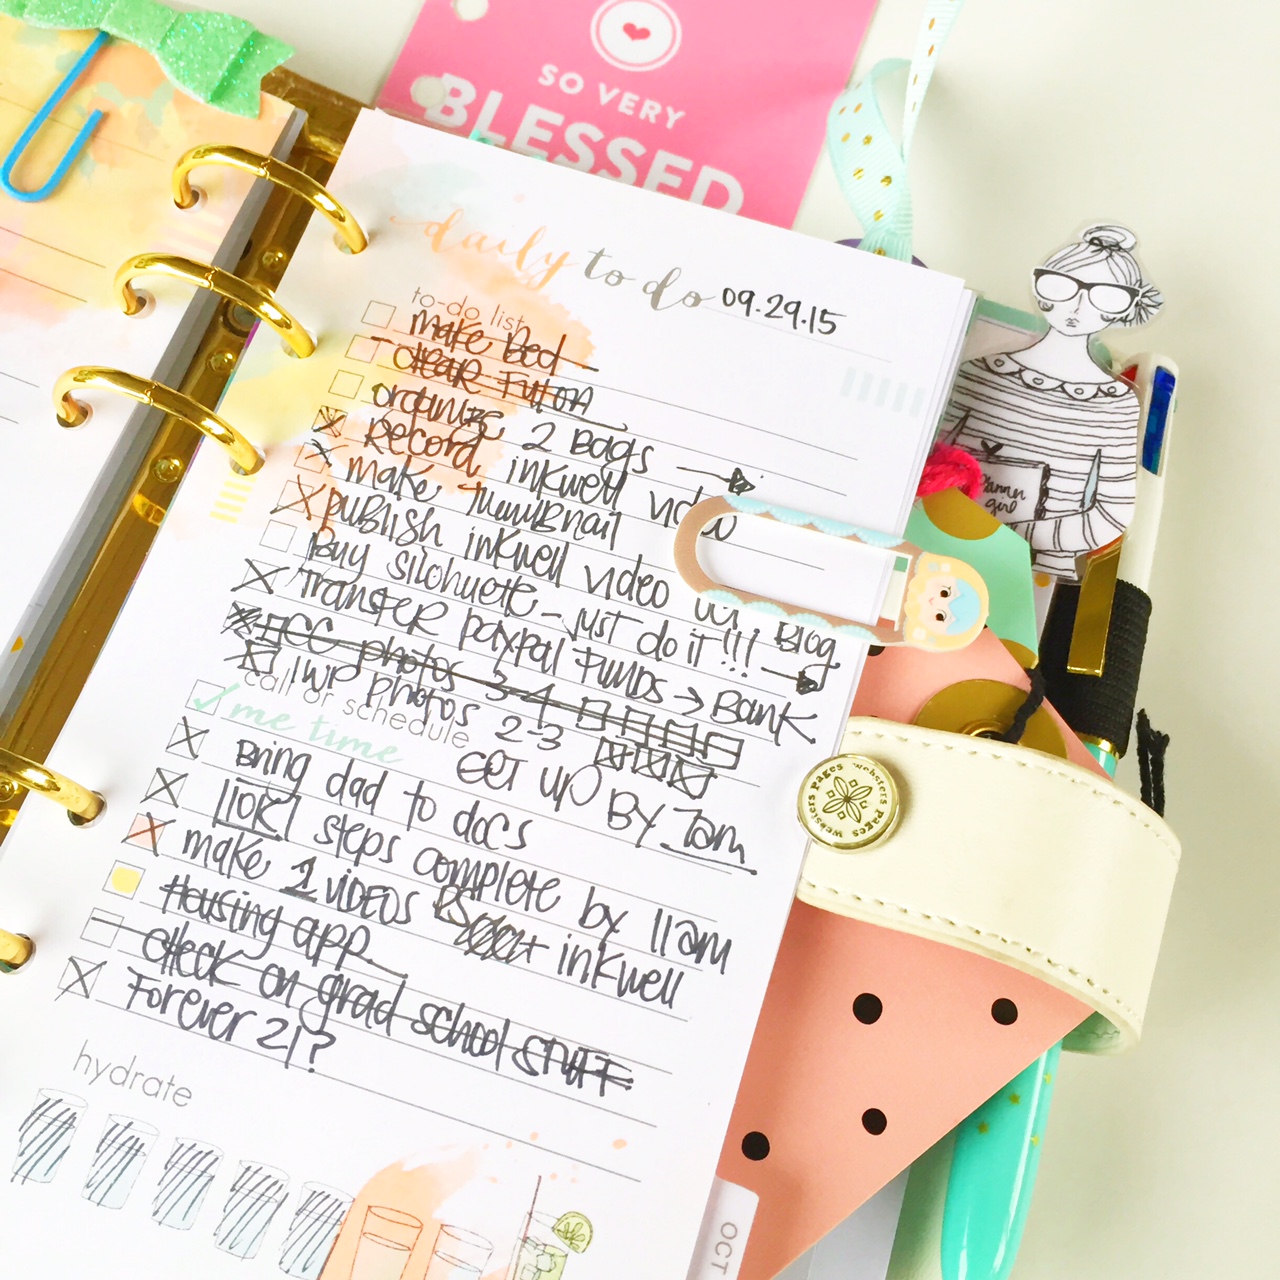 SO VERY
BLESSED
daily to do 09.29.15
to-do list
make Bed
clear Futon
organize 2 Bags
Record inkwell video
make Thumbnail
publish inkwell video Blog
Buy silohuete - just do it!!!
Transfer paypal Funds → Bank
photos 3-4
1 WP photos 2-3
call or schedule
me time
GET UP BY 7am
Bring dad to docs
110K1 steps complete by 11am
make 1 VIDEOS inkwell
Housing app.
check on grad school STUFF
Forever 21?
hydrate
Planner
girl
websters pages websters pages
OCT